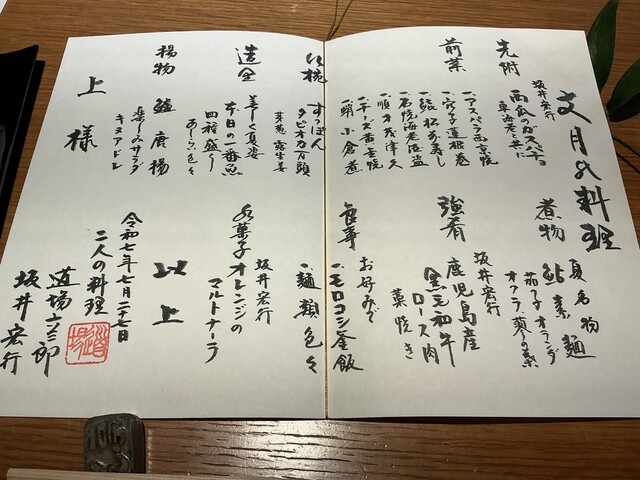 文月の料理
先附
坂井宏行
西瓜のガスパチョ
車海老と共に
前菜
一、アスパラ西京漬
一、穴子蓮根巻
一、チーズ黄金焼
一、蛸小倉煮
椀
すっぽん
タピオカ万頭
芽葱 露生姜
造里
美しく夏姿
本日の一番魚
四種盛り
あしらい色々
揚物
鱧唐揚
楽しみサラダ
キヌアドレ
煮物
夏名物
鮎素麺
茄子オランダ
オクラ
強肴
坂井宏行
鹿児島産
黒毛和牛
ロース肉
藁焼き
食事
お好みで
一、モロコシ釜飯
一、麺類色々
水菓子
坂井宏行
オレンジの
マルトナーラ
以上
令和七年七月二十七日
二人の料理
道場六三郎
坂井宏行
道場
上様